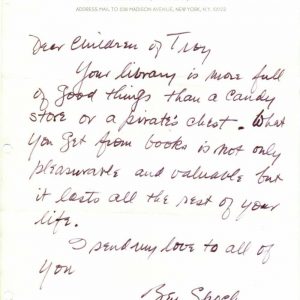 ADDRESS MAIL TO 538 MADISON AVENUE, NEW YORK, N.Y. 10022
Dear Children of Troy
Your library is more full
of good things than a candy
store or a pirate's chest. What
you get from books is not only
pleasurable and valuable but
it lasts all the rest of your
life.
I send my love to all of
you
Ben